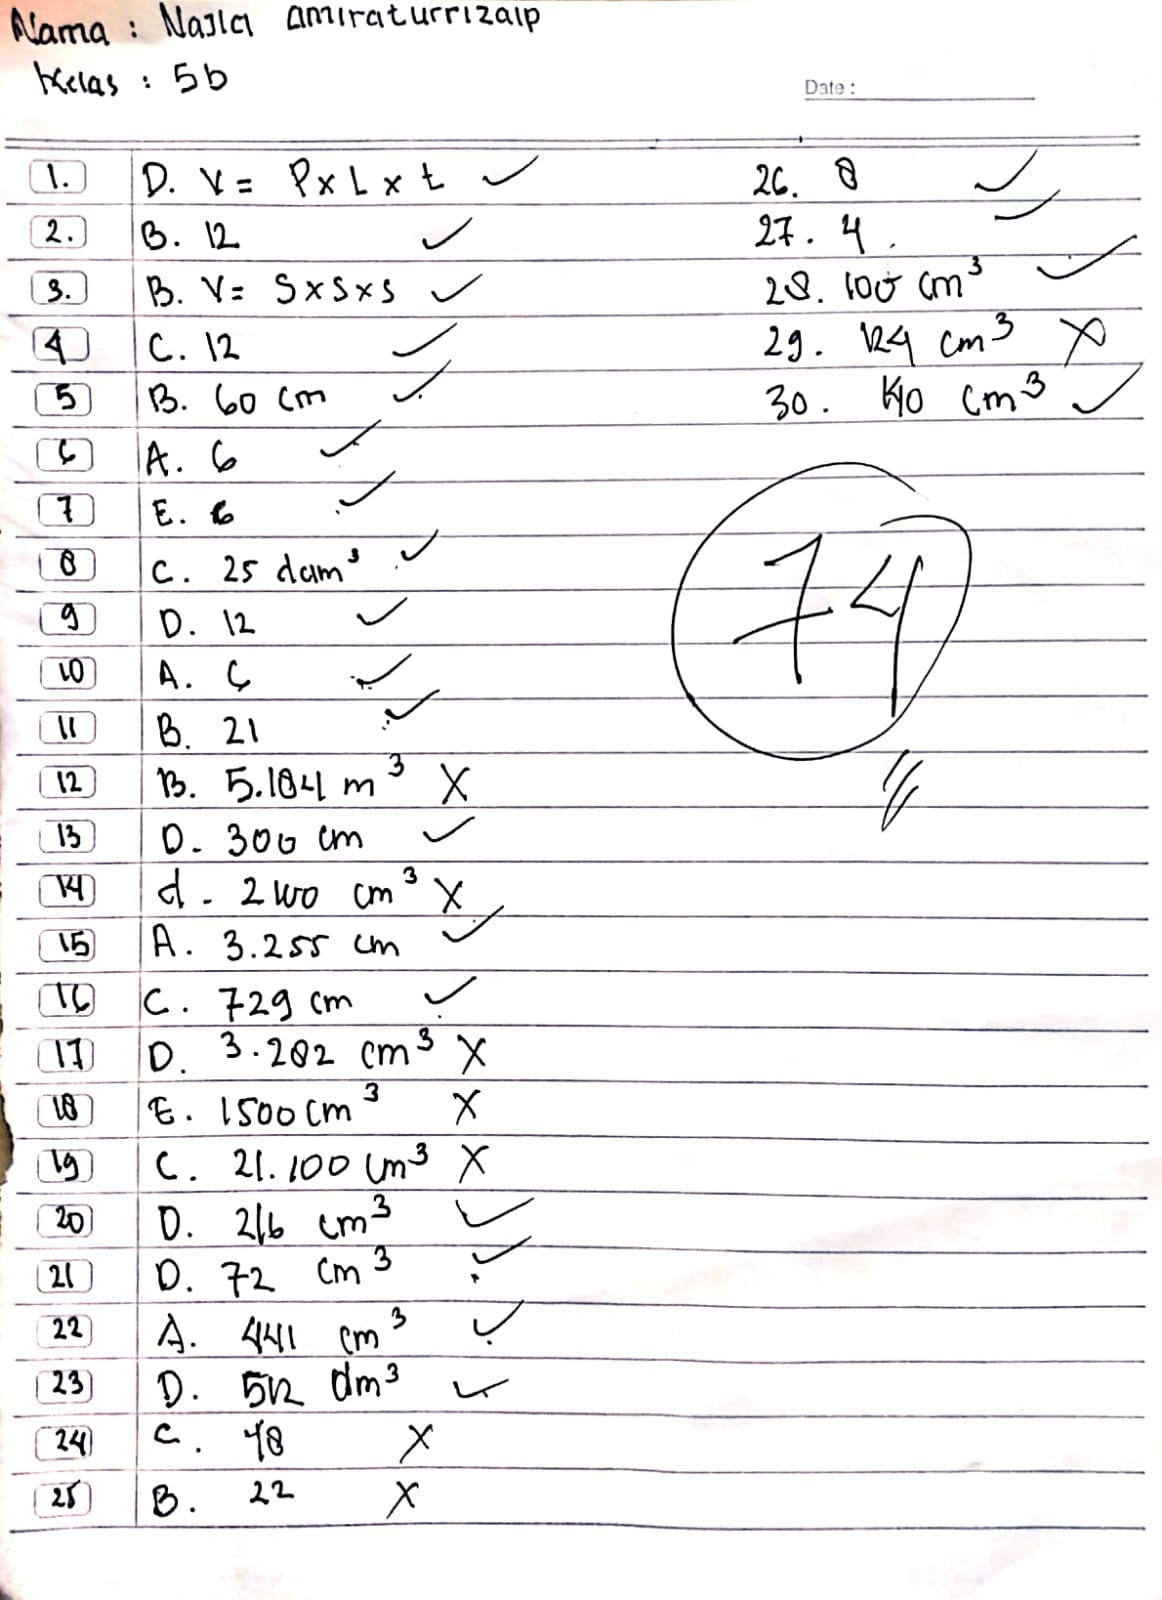 Nama : Najla amiraturrizaip
Kelas : 5b
Date :
1. D. V = P x L x t ✓
2. B. 12 ✓
3. B. V = S x S x S ✓
4 C. 12 ✓
5 B. 60 cm ✓
6 A. 6 ✓
7 E. 6 ✓
8 C. 25 dam³ ✓
9 D. 12 ✓
10 A. 6 ✓
11 B. 21 ✓
12 B. 5.184 m³ X
13 D. 300 cm ✓
14 d. 2400 cm³ X
15 A. 3.255 cm ✓
16 C. 729 cm ✓
17 D. 3.282 cm³ X
18 E. 1500 cm³ X
19 C. 21.100 cm³ X
20 D. 216 cm³ ✓
21 D. 72 cm³ ✓
22 A. 441 cm³ ✓
23 D. 512 dm³ ✓
24 C. 48 X
25 B. 22 X
26. 8 ✓
27. 4. ✓
28. 100 cm³ ✓
29. 124 cm³ X
30. 140 cm³ ✓
74